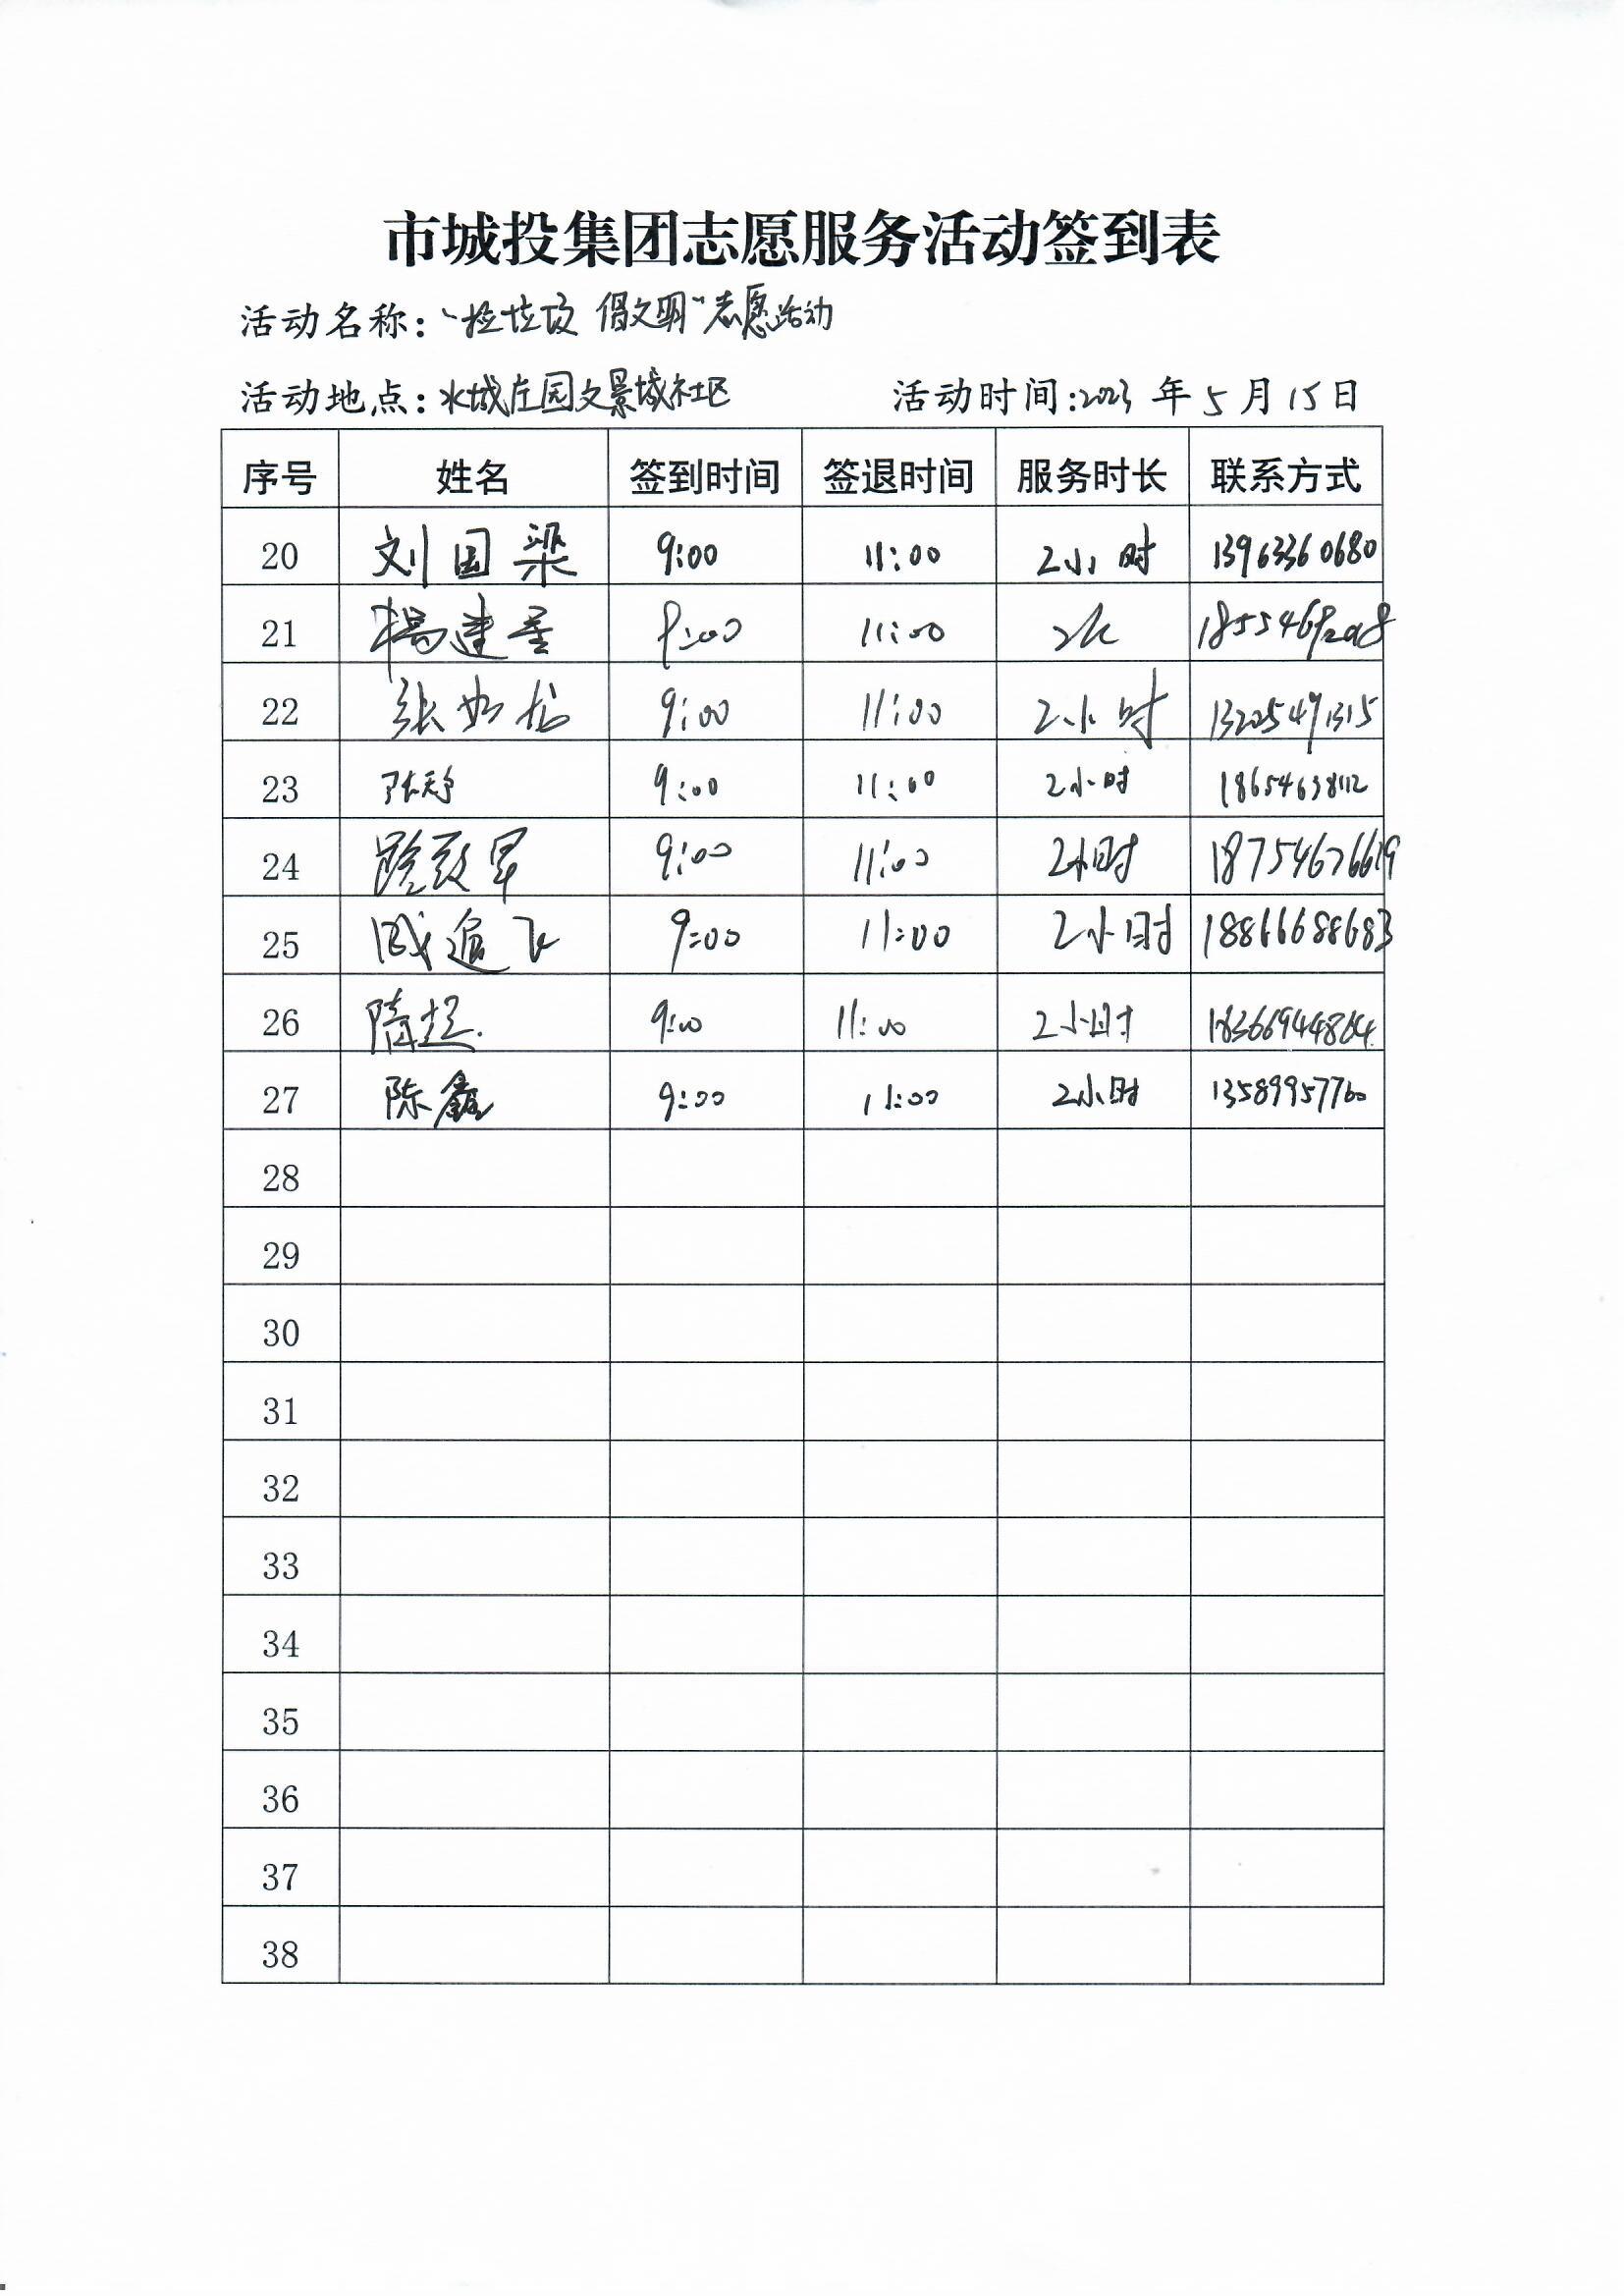 市城投集团志愿服务活动签到表
活动名称：“捡垃圾 倡文明”志愿活动
活动地点：水城庄园文景城社区 活动时间：2023 年 5 月 15 日
序号 姓名 签到时间 签退时间 服务时长 联系方式
20 刘国梁 9:00 11:00 2小时 13963360680
21 杨建 9:00 11:00 2h
22 张 9:00 11:00 2小时 13205491315
23 9:00 11:00 2小时 18654638112
24 9:00 11:00 2小时 18754676619
25 飞 9:00 11:00 2小时 18866688683
26 隋超 9:00 11:00 2小时 18366944864
27 陈鑫 9:00 11:00 2小时 13589957760
28
29
30
31
32
33
34
35
36
37
38